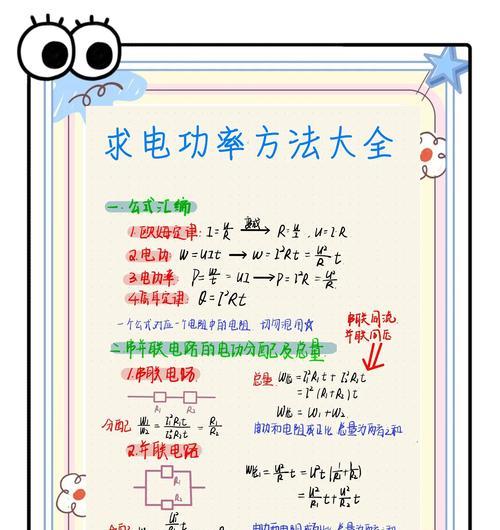 求电功率方法大全
一.公式汇编
1.欧姆定律: I=U/R 变形→ R=U/I , U=I·R
2.电功 W=UIt → W=I²Rt=U²/R t
3.电功率 P=W/t=UI → P=I²R=U²/R
4.焦耳定律: Q=I²Rt
一个公式对应一个电阻中的电阻 切勿混用☆
串联同流
并联同压
二.串并联电路的电功分配及总量
1.串联电路
R₁ R₂
总量 W总=I₁²R₁t+I₂²R₂t
=I²(R₁+R₂)t
W总=W₁+W₂
分配 W₁/W₂=I₁²R₁t/I₂²R₂t=R₁/R₂
电功和电阻成正比 总量为两者之和
2.并联电路
R₁
R₂
W总=U²/R t=U²t(1/R₁+1/R₂)
=U²/R₁ t+U²/R₂ t